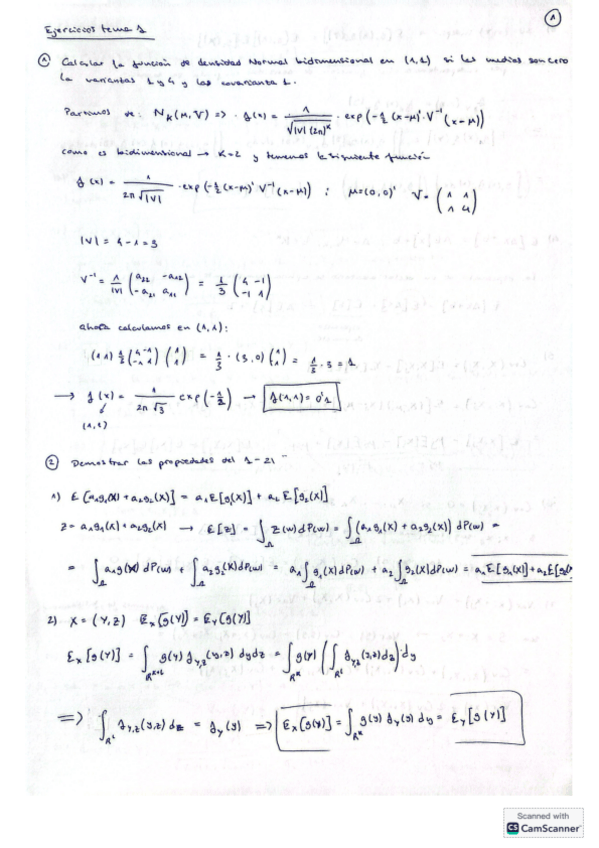 1
Ejercicios tema 1
1 Calcular la función de densidad Normal bidimensional en (1,1) si las medias son cero
la varianzas 1 y 4 y las covarianza 1.
Partimos de: N_K(μ,V) => f(x) = 1/√(|V|(2π)^K) · exp(-½(x-μ)'·V⁻¹(x-μ))
como es bidimensional → K=2 y tenemos la siguiente función
f(x) = 1/(2π√|V|) · exp(-½(x-μ)' V⁻¹(x-μ)) ; μ=(0,0)' V= (1 1; 1 4)
|V| = 4-1=3
V⁻¹ = 1/|V| (a₂₂ -a₁₂; -a₂₁ a₁₁) = 1/3 (4 -1; -1 1)
ahora calculamos en (1,1):
(1 1) 1/3 (4 -1; -1 1) (1; 1) = 1/3 · (3,0) (1; 1) = 1/3 · 3 = 1
→ f(x) = 1/(2π√3) exp(-½) → f(1,1) = 0'1
(1,1)
2 Demostrar las propiedades del 1-21
1) E[a₁g₁(X)+a₂g₂(X)] = a₁E[g(X)] + a₂E[g₂(X)]
Z = a₁g₁(X)+a₂g₂(X) → E[Z] = ∫_Ω Z(w)dP(w) = ∫_Ω (a₁g₁(X)+a₂g₂(X)) dP(w) =
= ∫_Ω a₁g(X) dP(w) + ∫_Ω a₂g₂(X)dP(w) = a₁∫_Ω g₁(X)dP(w) + a₂∫_Ω g₂(X)dP(w) = a₁E[g₁(X)]+a₂E[g₂(X)
2) X = (Y,Z) E_X[g(Y)] = E_Y[g(Y)]
E_X[g(Y)] = ∫_{R^{K+L}} g(y) f_{Y,Z}(y,z) dydz = ∫_{R^K} g(y) (∫_{R^L} f_{Y,Z}(y,z)dz)·dy
=> ∫_{R^L} f_{Y,Z}(y,z) dz = f_Y(y) => E_X[g(Y)] = ∫_{R^K} g(y) f_Y(y) dy = E_Y[g(Y)]
Scanned with
CS CamScanner